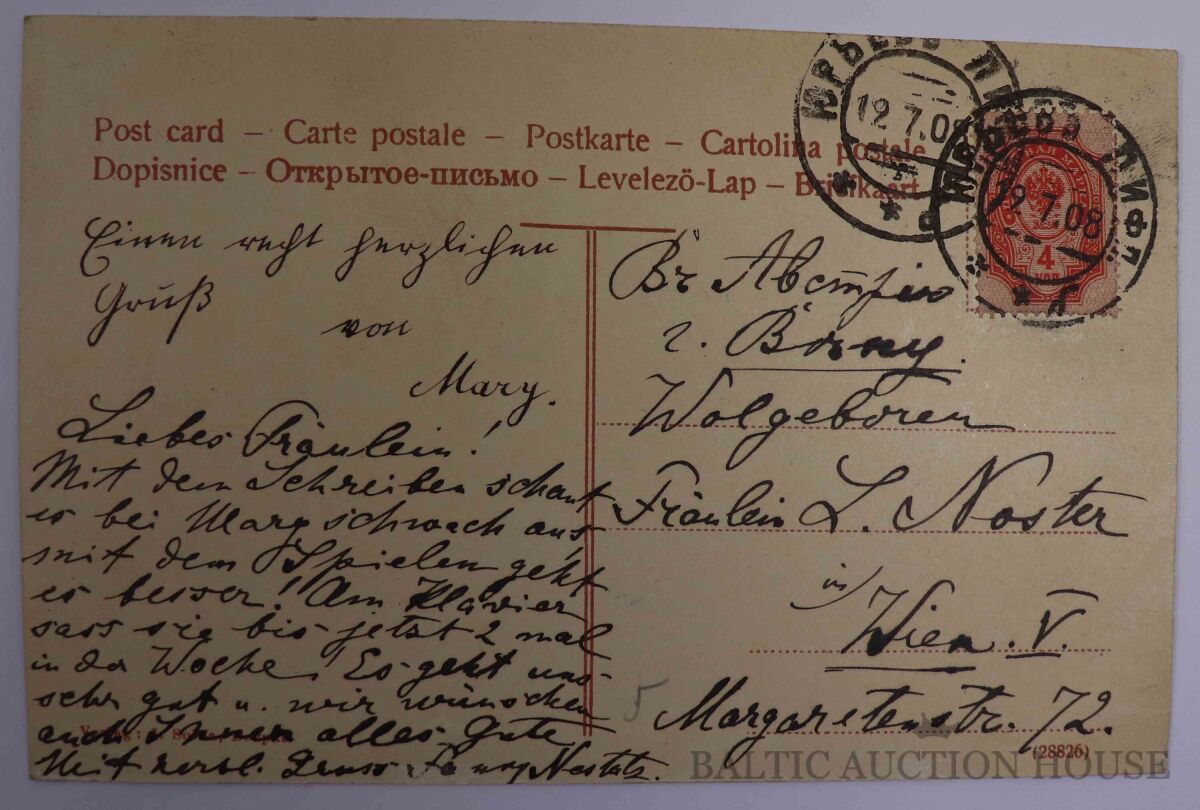 Post card – Carte postale – Postkarte – Cartolina postale
Dopisnice – Открытое-письмо – Levelező-Lap – Briefkaart
ЮРЬЕВЪ ЛИФЛ
12.7.08
ЮРЬЕВЪ ЛИФЛ
12.7.08
МАРКА
4
КОП
Einen recht herzlichen
Gruß
von
Mary.
Liebes Fräulein!
Mit dem Schreiben schaut
es bei Mary schwach aus,
mit dem Spielen geht
es besser! Am Klavier
sass sie bis jetzt 2 mal
in der Woche! Es geht uns
sehr gut u. wir wünschen
auch Ihnen alles Gute
Mit herzl. Gruss
Въ Австрію
г. Вѣну.
Wolgeboren
Fräulein L. Noster
in
Wien. V.
Margaretenstr. 72.
5
(28826)
BALTIC AUCTION HOUSE